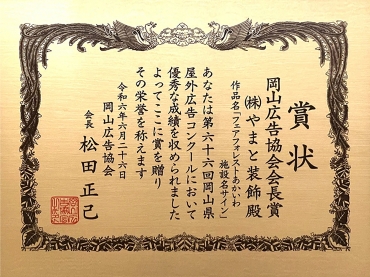 賞状
岡山広告協会会長賞
㈱やまと装飾殿
作品名「フェアフォレストあかいわ
施設名サイン」
あなたは第六十六回岡山県
屋外広告コンクールにおいて
優秀な成績を収められました
よってここに賞を贈り
その栄誉を称えます
令和六年六月二十六日
岡山広告協会
会長 松田正己